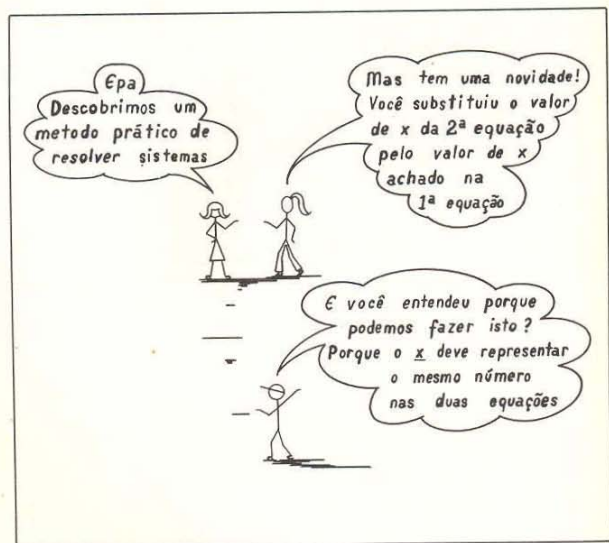 Epa
Descobrimos um
metodo prático de
resolver sistemas
Mas tem uma novidade!
Você substituiu o valor
de x da 2ª equação
pelo valor de x
achado na
1ª equação
E você entendeu porque
podemos fazer isto?
Porque o x deve representar
o mesmo número
nas duas equações